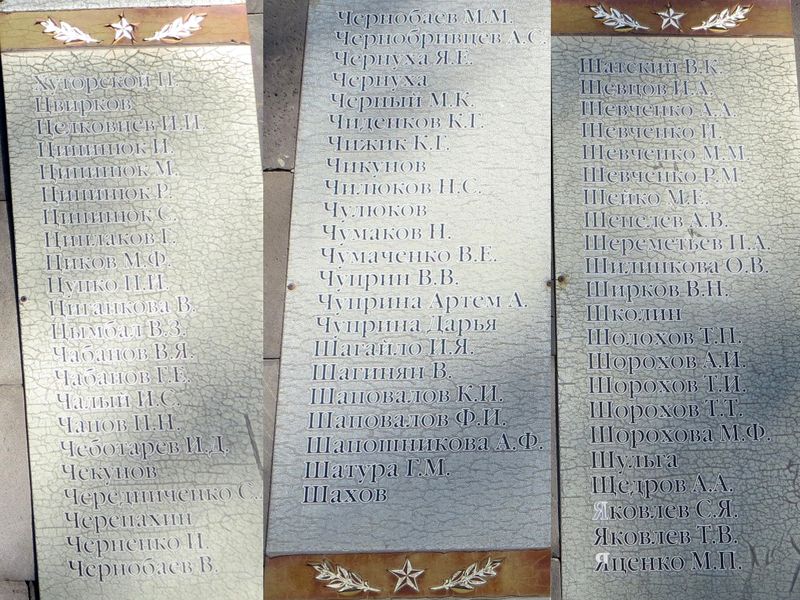 Хуторской П.
Цвирков
Целковнев И.И.
Ципинюк И.
Ципинюк М.
Ципинюк Р.
Ципинюк С.
Циплаков Г.
Циков М.Ф.
Цупко Н.И.
Цыганкова В.
Цымбал В.З.
Чабанов В.Я.
Чабанов Г.Е.
Чалый И.С.
Чапов Н.Н.
Чеботарев И.Д.
Чекунов
Чередниченко С.
Черепахин
Черненко И.
Чернобаев В.
Чернобаев М.М.
Чернобривцев А.С.
Чернуха Я.Е.
Чернуха
Черный М.К.
Чиленков К.Г.
Чижик К.Г.
Чикунов
Чилюков Н.С.
Чулюков
Чумаков Н.
Чумаченко В.Е.
Чуприн В.В.
Чуприна Артем А.
Чуприна Дарья
Шагайло И.Я.
Шагинян В.
Шаповалов К.И.
Шаповалов Ф.И.
Шапошникова А.Ф.
Шатура Г.М.
Шахов
Шатский В.К.
Шевцов И.А.
Шевченко А.А.
Шевченко И.
Шевченко М.М.
Шевченко Р.М.
Шейко М.Е.
Шепелев А.В.
Шереметьев П.А.
Шилинкова О.В.
Ширков В.Н.
Школин
Шолохов Т.П.
Шорохов А.И.
Шорохов Т.И.
Шорохов Т.Т.
Шорохова М.Ф.
Шульга
Щедров А.А.
Яковлев С.Я.
Яковлев Т.В.
Яценко М.П.